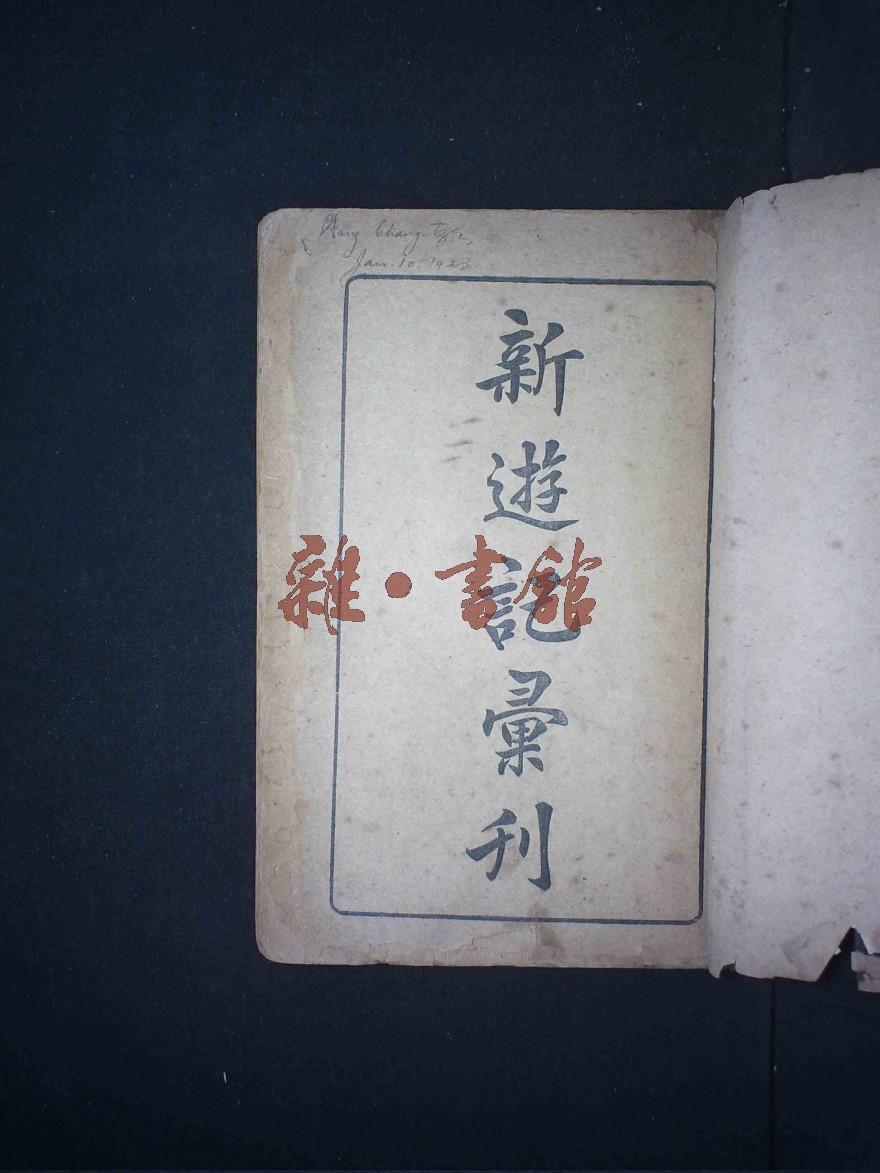 Chang
Jan. 10. 1923
新遊記彙刊
雜·書館